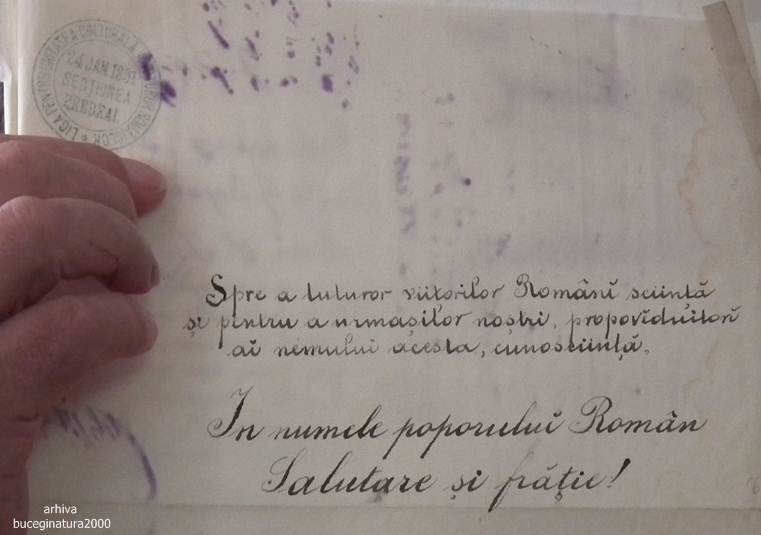 LIGA PENTRU UNITATEA CULTURALA A TUTUROR ROMANILOR *
24 JAN.1891
SECȚIUNEA
PREDEAL
Spre a tuturor viitorilor Românĭ sciință
și pentru a urmașilor noștri, propovĭduitorĭ
aĭ nemuluĭ acesta, cunosciință,
In numele poporuluĭ Român
Salutare și frăție!
arhiva
buceginatura2000